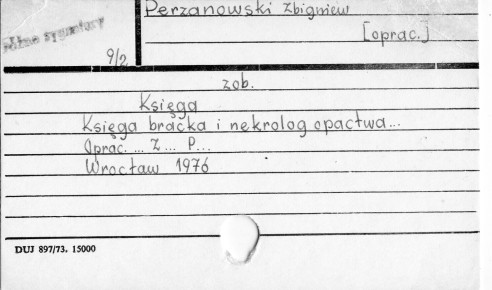 Perzanowski Zbigniew
[oprac.]
9/2
zob.
Księga
Księga bracka i nekrolog opactwa...
Oprac. ... Z ... P...
Wrocław 1976
DUJ 897/73. 15000